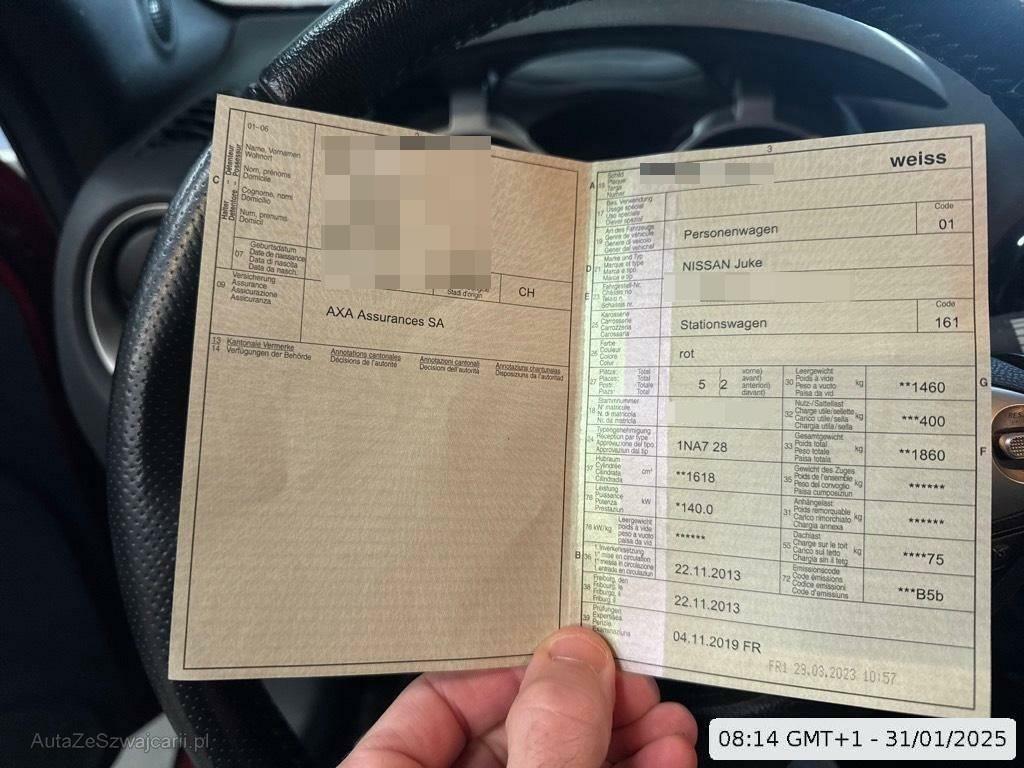 01-06
C
Name, Vornamen
Wohnort
Nom, prénoms
Domicile
Cognome, nomi
Domicilio
Num, prenums
Domicil
07
Geburtsdatum
Date de naissance
Data di nascita
Data da nasch.
Stadi d'origin
CH
09
Versicherung
Assurance
Assicurazione
Assicuranza
AXA Assurances SA
13
14
Kantonale Vermerke
Verfügungen der Behörde
Annotations cantonales
Décisions de l'autorité
Annotazioni cantonali
Decisioni dell'autorità
Annotaziuns chantunalas
Disposiziuns da l'autoritad
3
weiss
A
Schild
Plaque
Targa
Numer
17
Bes. Verwendung
Usage spécial
Uso speciale
Diever spezial
19
Art des Fahrzeugs
Genre de véhicule
Genere di veicolo
Gener dal vehichel
Personenwagen
Code
01
D
21
Marke und Typ
Marque et type
Marca e tipo
Marca e tip
NISSAN Juke
E
23
Fahrgestell-Nr.
Châssis no
Telaio n.
Schassis nr.
25
Karosserie
Carrosserie
Carrozzeria
Carossaria
Stationswagen
Code
161
26
Farbe
Couleur
Colore
Colur
rot
27
Plätze: Total
Places: Total
Posti: Totale
Plazs: Total
5
2
vorne)
avant)
anteriori)
davant)
30
Leergewicht
Poids à vide
Peso a vuoto
Paisa da vid
kg
**1460
G
18
Stammnummer
N° matricule
N. di matricola
Nr. da matricla
32
Nutz-/Sattellast
Charge utile/sellette
Carico utile/sella
Chargia utila/sella
kg
***400
24
Typengenehmigung
Réception par type
Approvazione del tipo
Approvaziun dal tip
1NA7 28
33
Gesamtgewicht
Poids total
Peso totale
Paisa totala
kg
**1860
F
37
Hubraum
Cylindrée
Cilindrata
Cilindrada
cm³
**1618
35
Gewicht des Zuges
Poids de l'ensemble
Peso del convoglio
Paisa cumposiziun
kg
******
76
Leistung
Puissance
Potenza
Prestaziun
kW
*140.0
31
Anhängelast
Poids remorquable
Carico rimorchiato
Chargia annexa
kg
******
78 kW/kg
Leergewicht
poids à vide
peso a vuoto
paisa da vid
******
55
Dachlast
Charge sur le toit
Carico sul tetto
Chargia sin il tetg
kg
****75
B
36
1. Inverkehrsetzung
1re mise en circulation
1a messa in circolazione
1. entrada en circulaziun
22.11.2013
72
Emissionscode
Code émissions
Codice emissioni
Code d'emissiuns
***B5b
38
Freiburg, den
Fribourg, le
Friburgo, il
Friburg, il
22.11.2013
39
Prüfungen
Expertises
Perizie
Examinaziuns
04.11.2019 FR
FR1 29.03.2023 10:57
AutaZeSzwajcarii.pl
08:14 GMT+1 - 31/01/2025